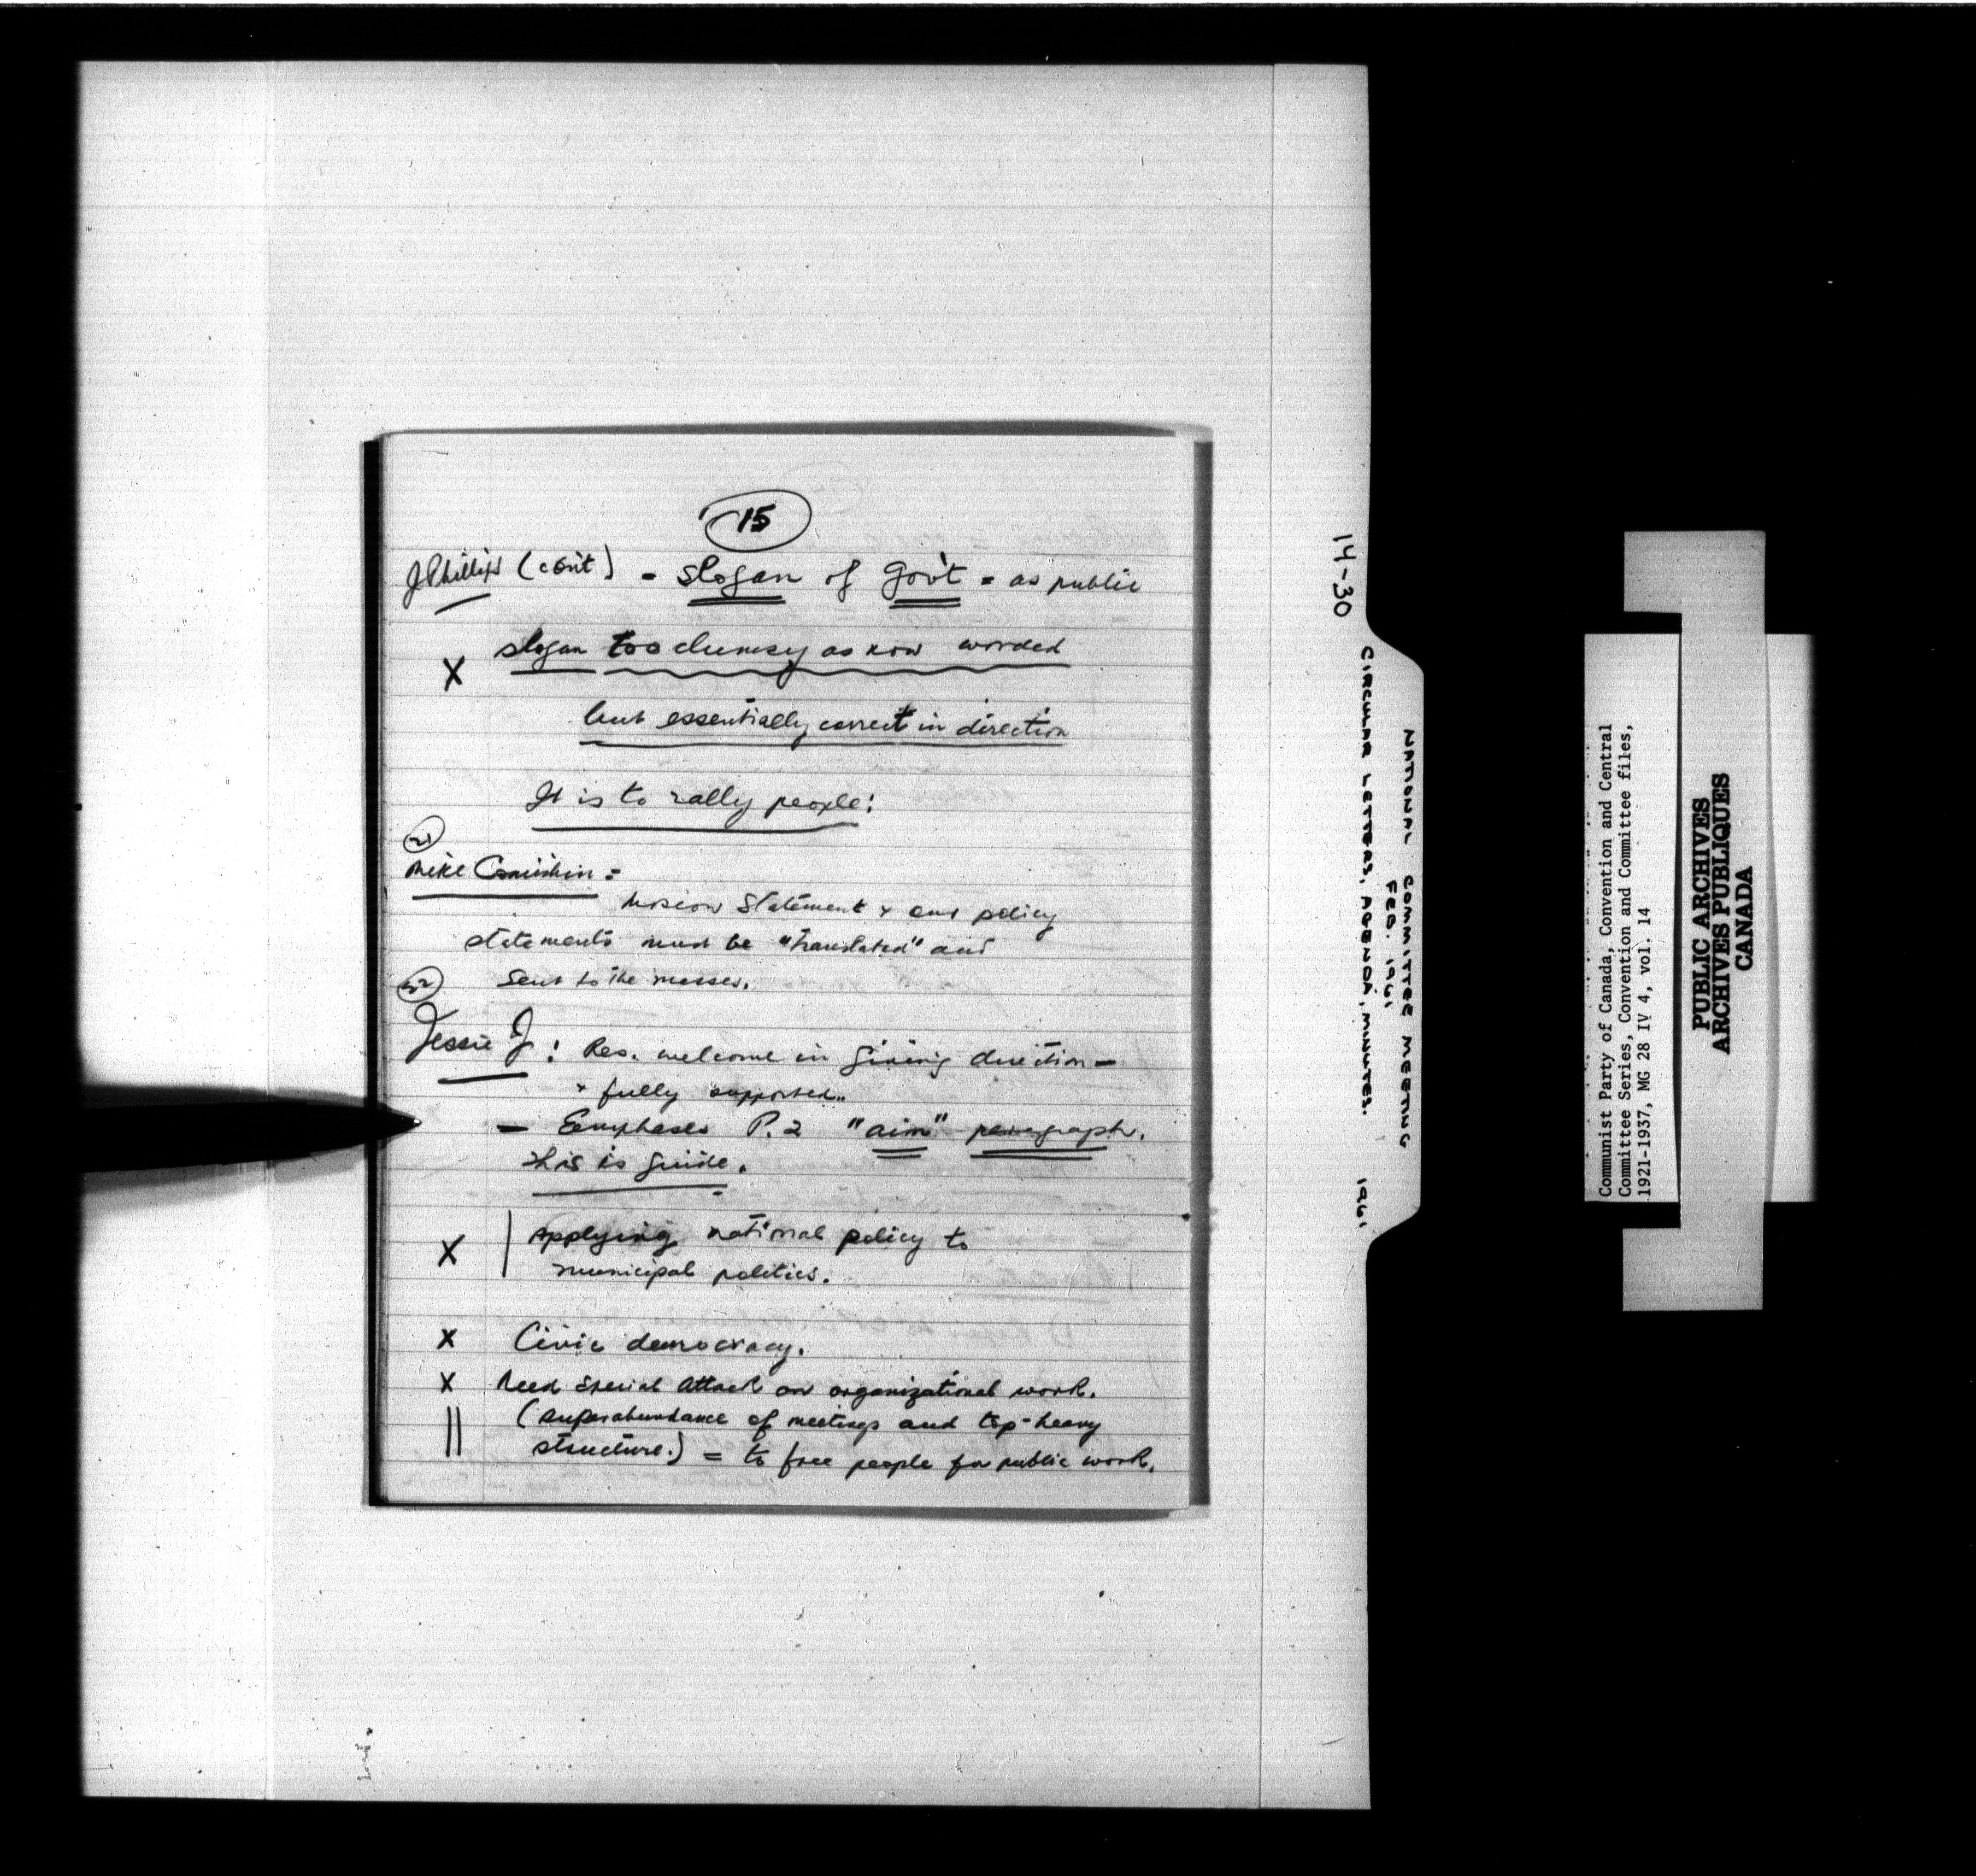 15
J Phillips (cont) - slogan of gov't = as public
X slogan too clumsy as now worded
but essentially correct in direction
It is to rally people!
Mike =
Moscow Statement & our policy
statements must be "translated" and
sent to the masses.
Jessie J: Res. welcome in giving direction -
& fully supported..
- Emphases P.2 "aim" paragraph.
this is guide.
X Applying national policy to
municipal politics.
X Civic democracy.
X Need special attack on organizational work.
(superabundance of meetings and top-heavy
structure.) = to free people for public work.
14-30
NATIONAL COMMITTEE MEETING
FEB. 1961,
CIRCULAR LETTERS, AGENDA, MINUTES. 1961
Communist Party of Canada, Convention and Central
Committee Series, Convention and Committee files,
1921-1937, MG 28 IV 4, vol. 14
PUBLIC ARCHIVES
ARCHIVES PUBLIQUES
CANADA